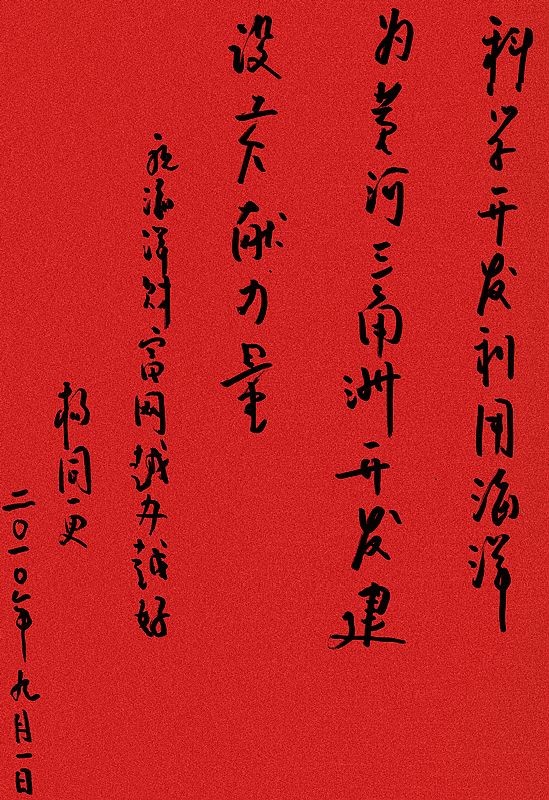 科学开发利用海洋
为黄河三角洲开发建
设贡献力量
祝海洋财富网越办越好
杨同
二〇一〇年九月一日